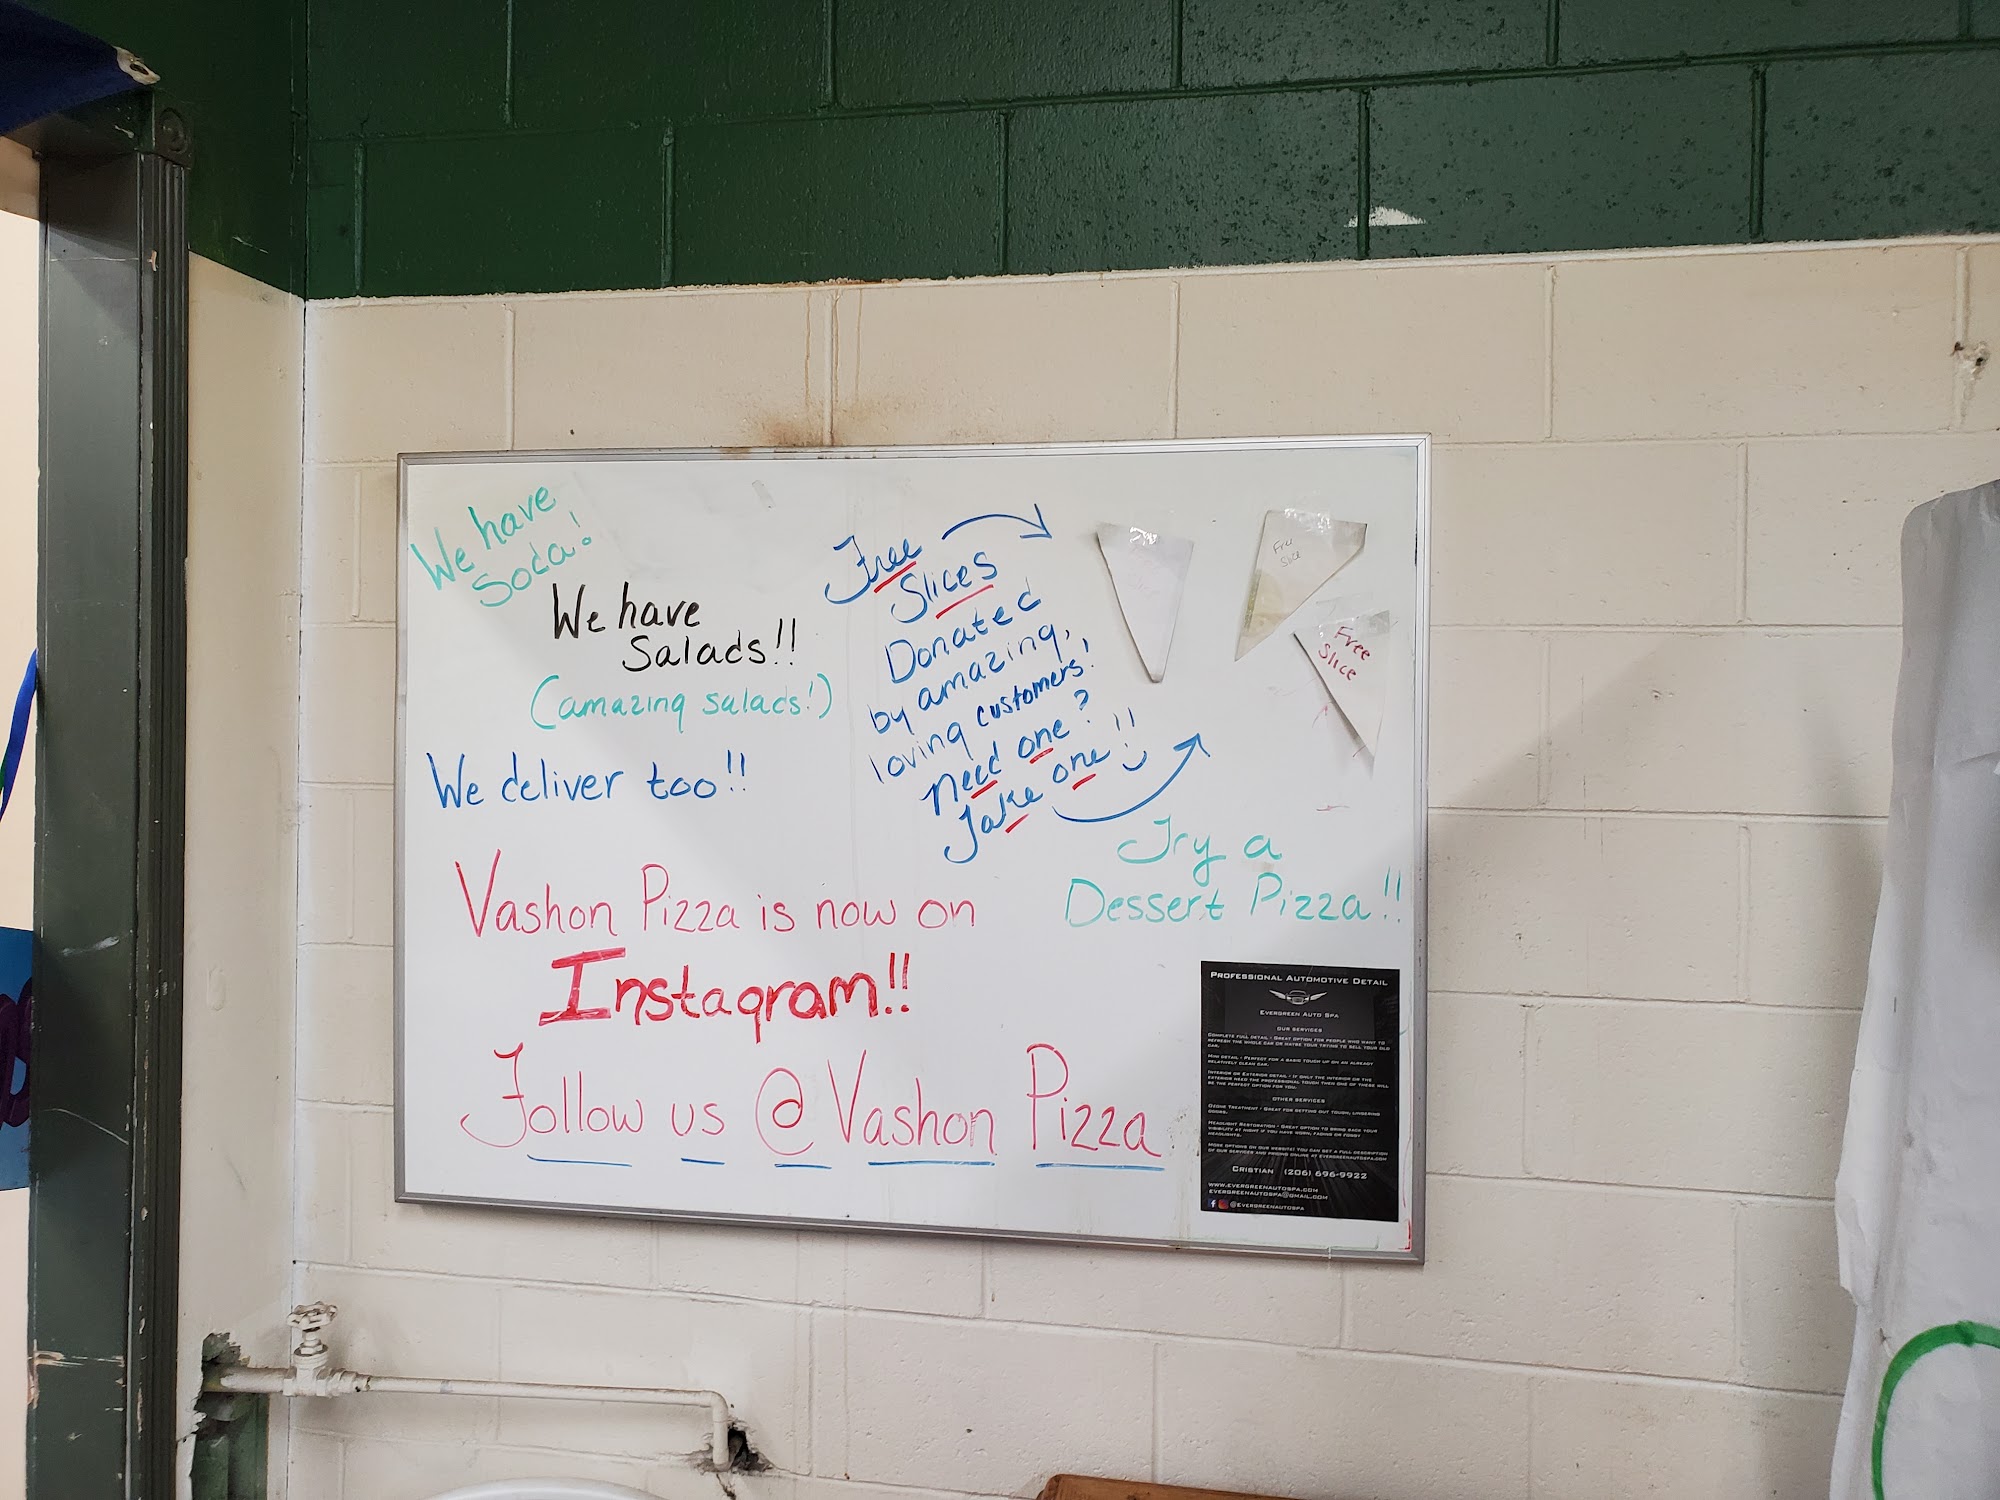 We have
Soda!
We have
Salads!!
(amazing salads!)
We deliver too!!
Free
Slices
Donated
by amazing,
loving customers!
Need one?
Take one!!
Free
Slice
Free
Slice
Try a
Dessert Pizza!!
Vashon Pizza is now on
Instagram!!
Follow us @ Vashon Pizza
Professional Automotive Detail
Evergreen Auto Spa
Our Services
Complete full detail - Great option for people who want to
refresh the whole car or maybe your trying to sell your old
car.
Mini detail - Perfect for a basic touch up on an already
relatively clean car.
Interior or Exterior detail - If only the interior or the
exterior need the professional touch then one of these will
be the perfect option for you.
Other Services
Ozone Treatment - Great for getting out tough, lingering
odors.
Headlight Restoration - Great option to bring back your
visibility at night if you have worn, fading or foggy
headlights.
More options on our website! You can get a full description
of our services and pricing online at evergreenautospa.com
Cristian (206) 696-9922
www.evergreenautospa.com
evergreenautospa@gmail.com
@Evergreenautospa